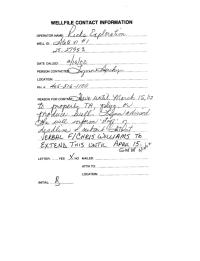 WELLFILE CONTACT INFORMATION
OPERATOR NAME: Ricks Exploration
WELL ID: #1
DATE CALLED:
PERSON CONTACTED: Lynn
LOCATION:
PH. #: 405-516-1100
REASON FOR CONTACT: Have until March 15, 02
to properly TA, plug, or
produce well. Lynn advised
she will inform staff of
deadline &
VERBAL F/CHRIS WILLIAMS TO
EXTEND THIS UNTIL APRIL 15,
LETTER: YES X NO MAILED:
ATTN TO:
LOCATION:
INITIAL